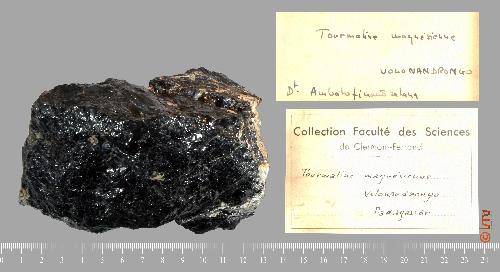 Tourmaline magnésienne
VOLONANDRONGO
Dt. Ambatofinandrahana
Collection Faculté des Sciences
de Clermont-Ferrand
Tourmaline magnésienne
Madagascar
0 1 2 3 4 5 6 7 8 9 10 11 12 13 14 15 16 17 18 19 20 21 22 23 24